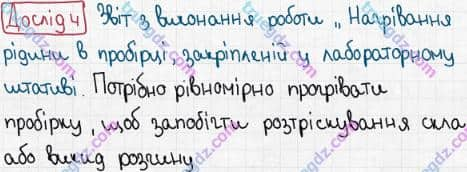 Дослід 4 Звіт з виконання роботи „Нагрівання
рідини в пробірці, закріпленій у лабораторному
штативі. Потрібно рівномірно прогрівати
пробірку, щоб запобігти розтріскування скла
або викид розчину